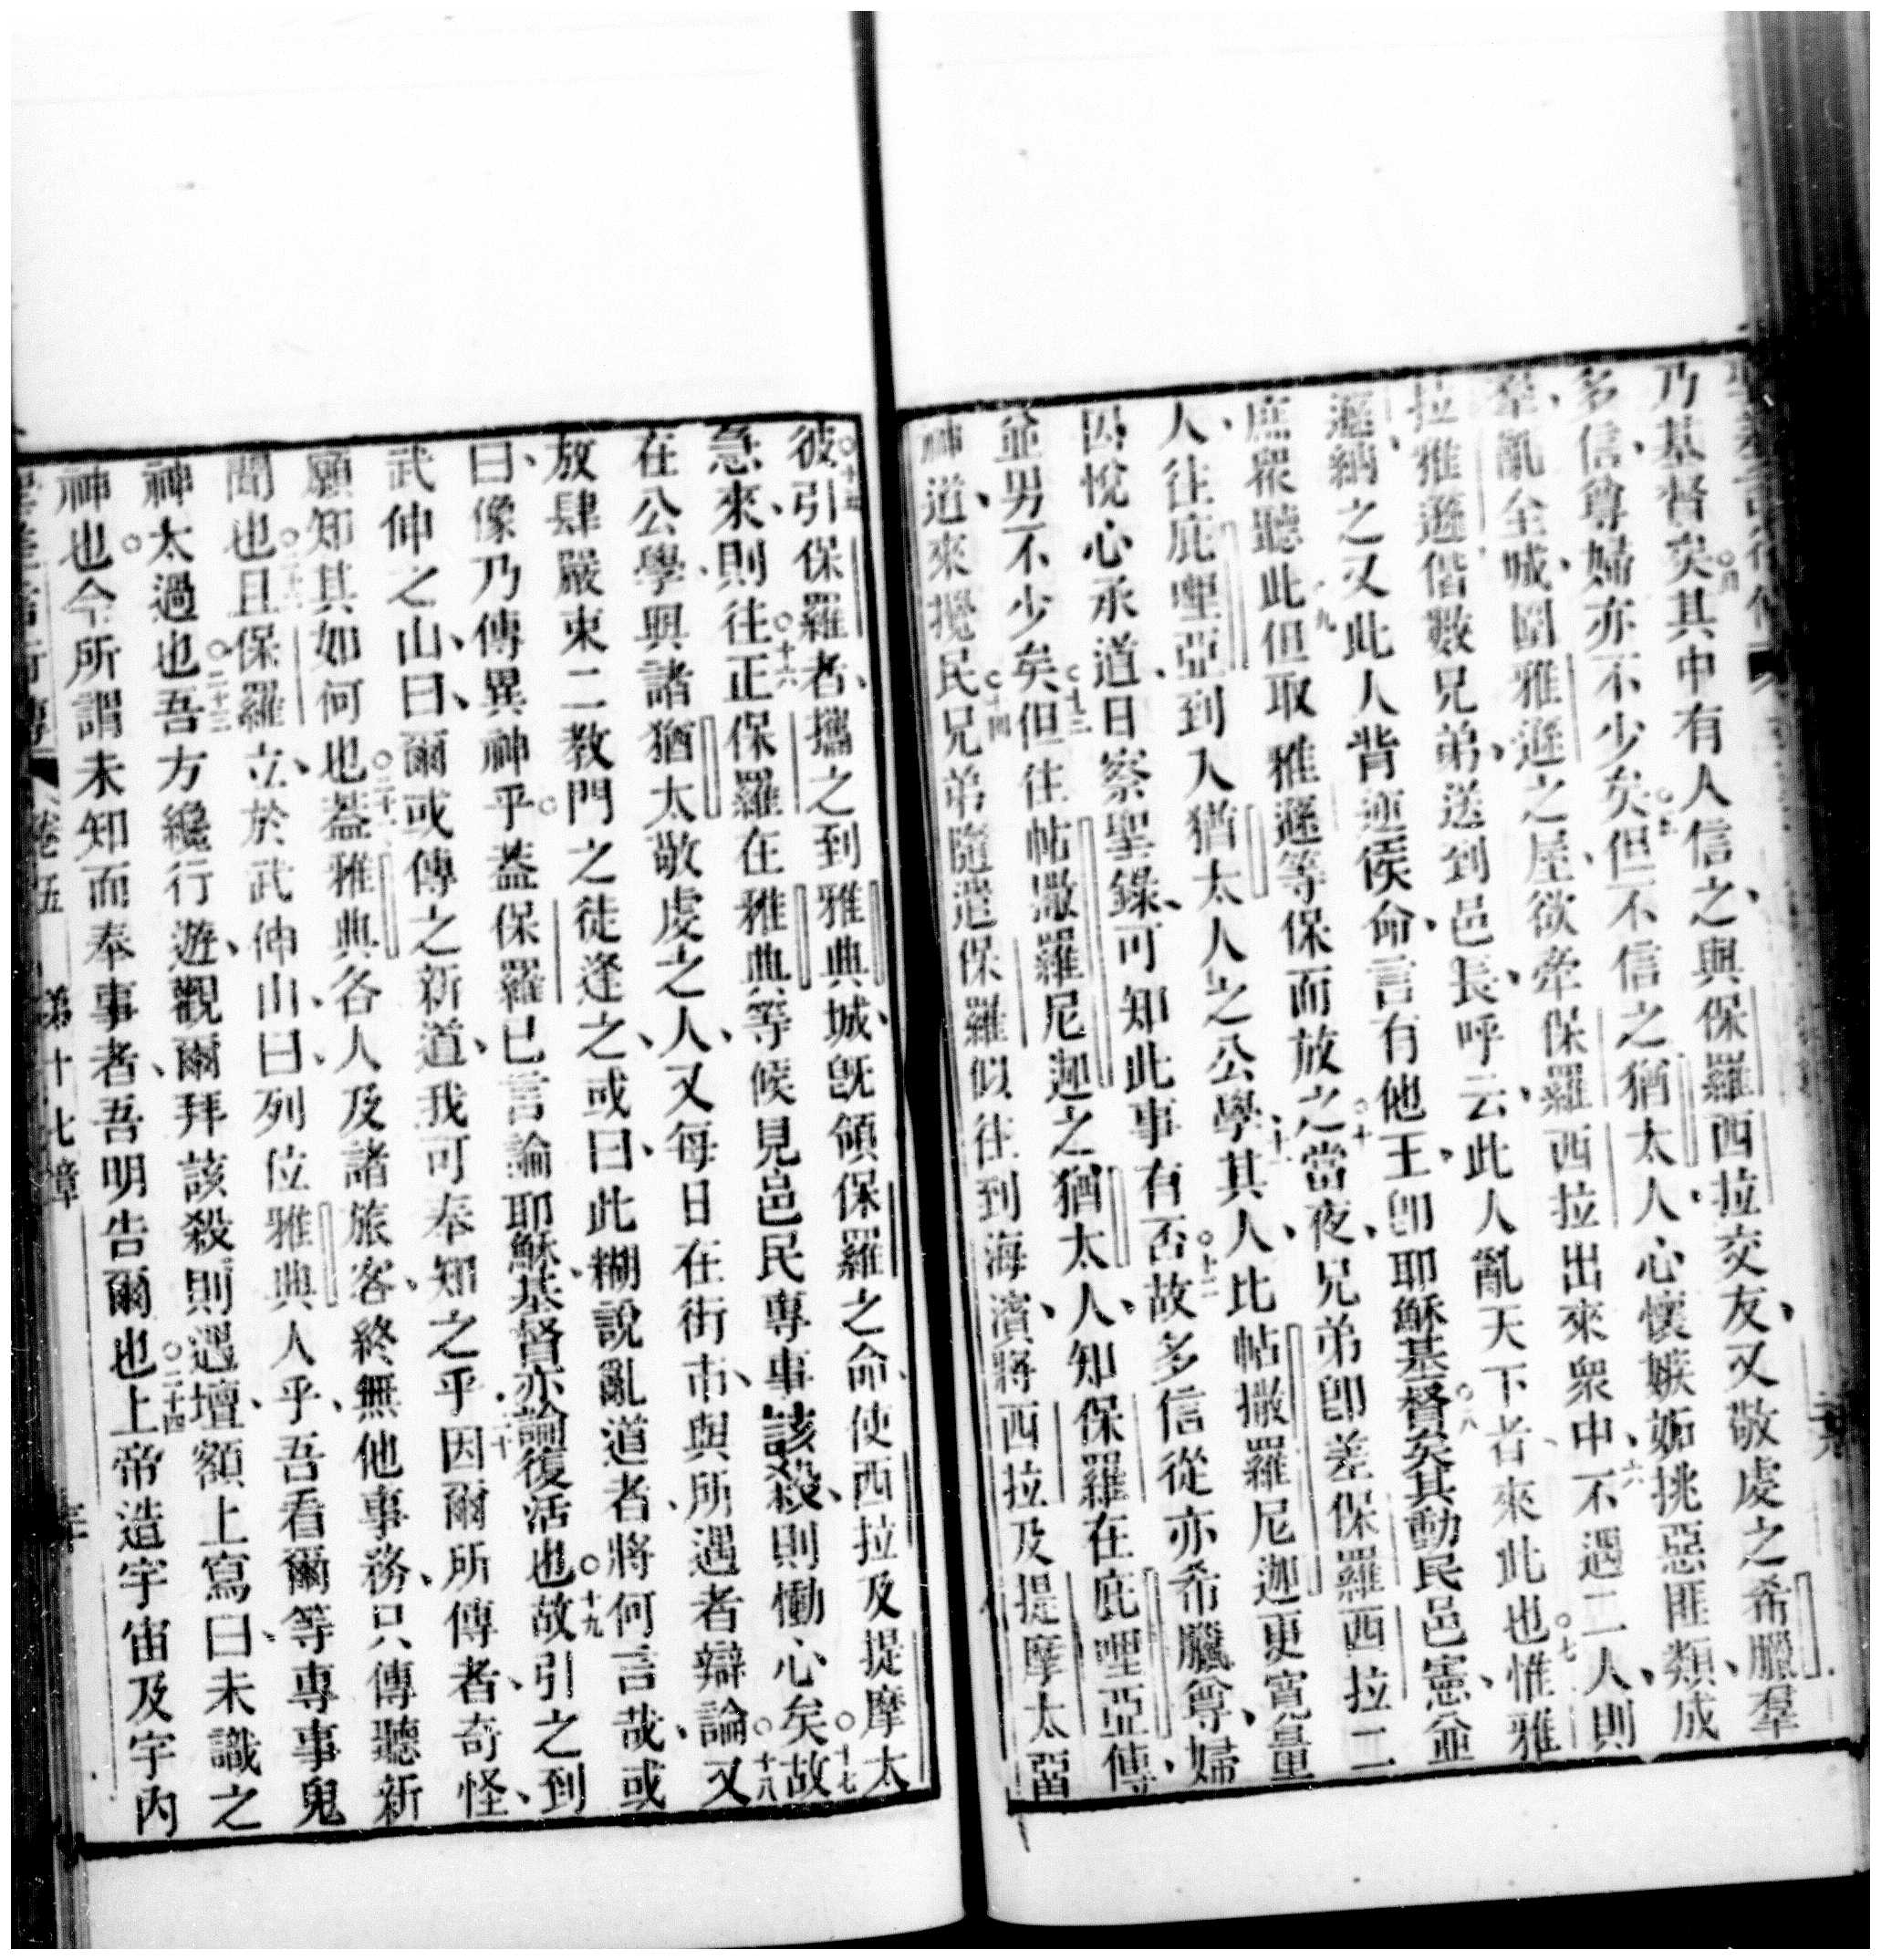 乃基督矣○四其中有人信之、與保羅西拉交友、又敬虔之希臘羣
多信、尊婦亦不少矣○五但不信之猶太人、心懷嫉妬、挑惡匪類、成
羣、亂全城、圍雅遜之屋、欲牽保羅西拉出來眾中、○六不遇二人、則
拉雅遜偕數兄弟、送到邑長、呼云、此人亂天下者、來此也○七惟雅
遜納之、又此人背逆𠋫命、言有他王、卽耶穌基督矣○八其動民邑憲、並
庶眾聽此、○九但取雅遜等保而放之○十當夜、兄弟卽差保羅西拉二
人、往庇哩亞到入猶太人之公學、○十一其人、比帖撒羅尼迦更寬量
因悅心承道、日察聖錄、可知此事有否○十二故多信從、亦希臘尊婦、
並男不少矣○十三但往帖撒羅尼迦之猶太人、知保羅在庇哩亞、傳
神道、來攪民○十四兄弟隨遣保羅似往到海濱、將西拉及提摩太留
彼、○十五引保羅者、攜之到雅典城、旣領保羅之命、使西拉及提摩太、
急來、則往○十六正保羅在雅典等候、見邑民專事該殺、則慟心矣○十七故
在公學、與諸猶太敬虔之人、又每日在街市、與所遇者辯論○十八又
放肆嚴束二教門之徒逢之、或曰、此糊說亂道者、將何言哉、或
曰、像乃傳異神乎、蓋保羅已言論耶穌基督、亦論復活也○十九故引之到
武仲之山、曰、爾或傳之新道、我可奉知之乎、○二十因爾所傳者、奇怪、
願知其如何也○二十一蓋雅典各人及諸旅客、終無他事務、只傳聽新
聞也○二十二且保羅立於武仲山、曰、列位雅典人乎、吾看爾等專事鬼
神太過也○二十三吾方纔行遊、觀爾拜該殺、則遇壇、額上寫曰、未識之
神也。今所謂未知而奉事者、吾明告爾也○二十四上帝造宇宙及宇內
卷五 第十七章